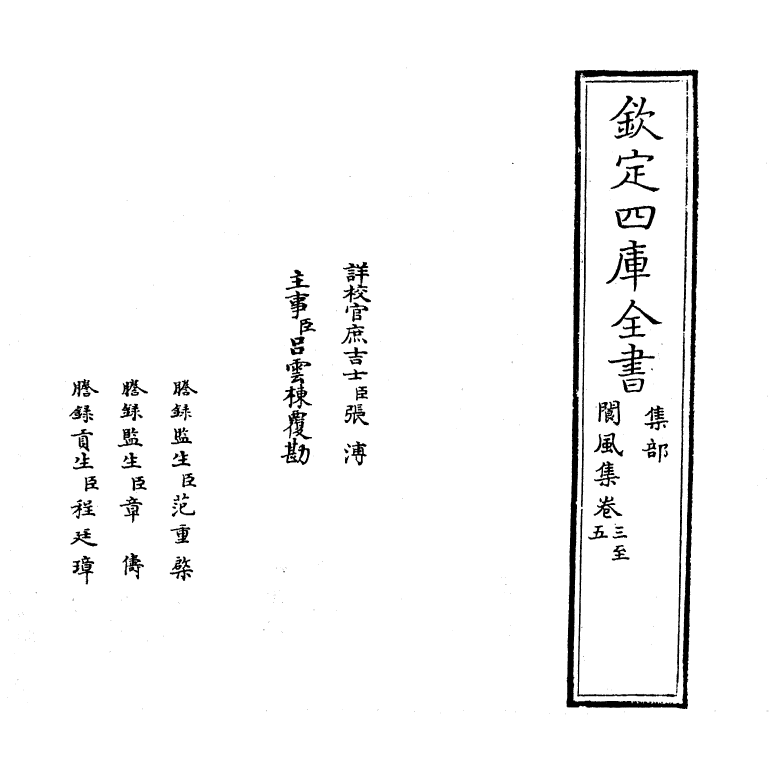 欽定四庫全書
集部
閬風集卷三至五
詳校官庶吉士臣張溥
主事臣呂雲棟覆勘
謄録監生臣范重棨
謄録監生臣章儔
謄録貢生臣程廷璋